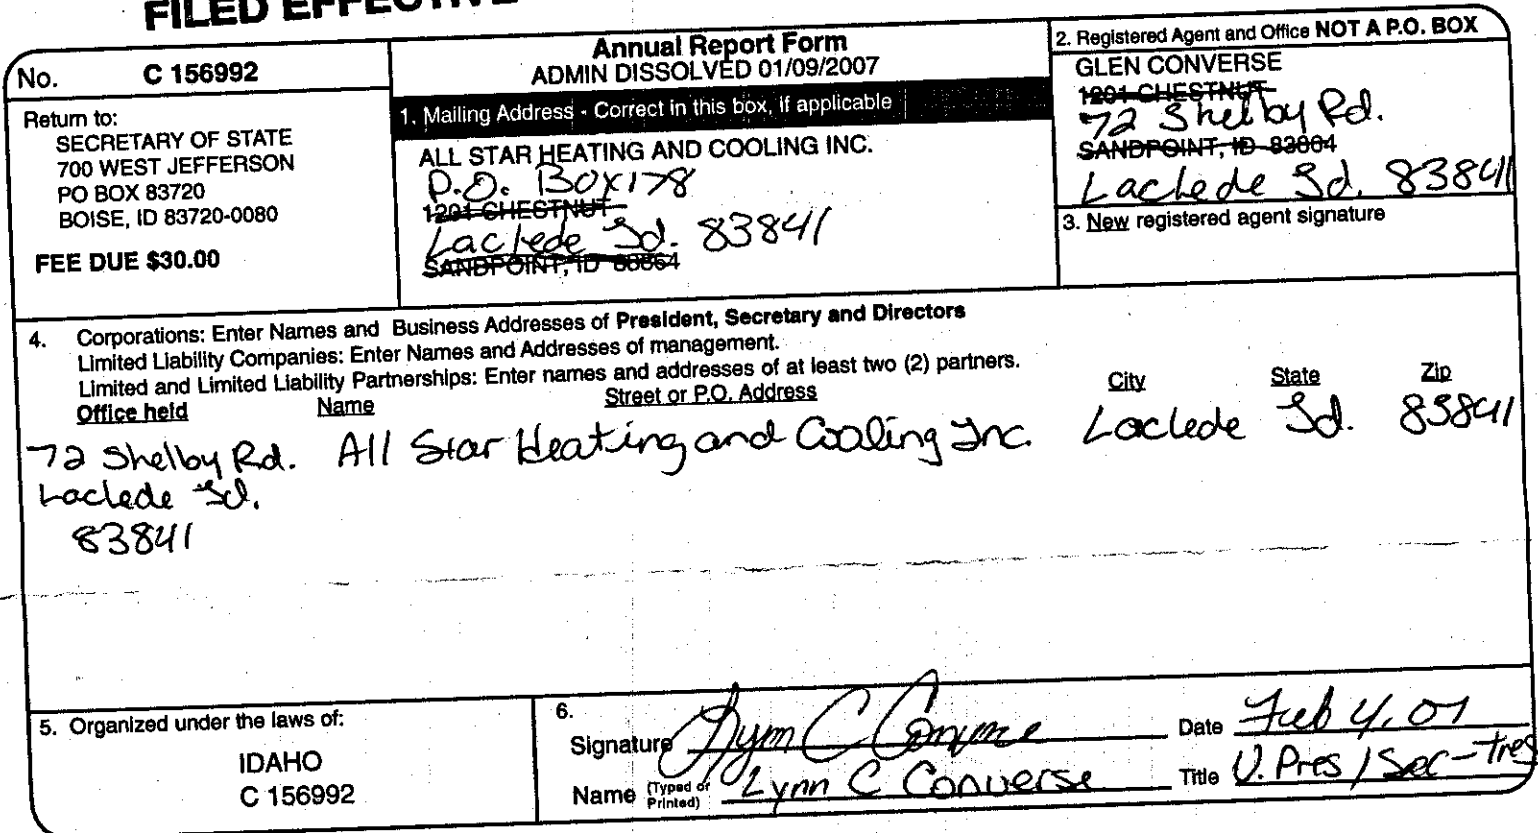 FILED EFFECTIVE
No. C 156992
Return to:
SECRETARY OF STATE
700 WEST JEFFERSON
PO BOX 83720
BOISE, ID 83720-0080
FEE DUE $30.00
Annual Report Form
ADMIN DISSOLVED 01/09/2007
1. Mailing Address - Correct in this box, if applicable
ALL STAR HEATING AND COOLING INC.
P.O. Box 178
1201 CHESTNUT
Laclede Id. 83841
SANDPOINT, ID 83864
2. Registered Agent and Office NOT A P.O. BOX
GLEN CONVERSE
1201 CHESTNUT
72 Shelby Rd.
SANDPOINT, ID 83864
Laclede Id. 83841
3. New registered agent signature
4. Corporations: Enter Names and Business Addresses of President, Secretary and Directors
Limited Liability Companies: Enter Names and Addresses of management.
Limited and Limited Liability Partnerships: Enter names and addresses of at least two (2) partners.
Office held Name Street or P.O. Address City State Zip
72 Shelby Rd. All Star Heating and Cooling Inc. Laclede Id. 83841
Laclede Id.
83841
5. Organized under the laws of:
IDAHO
C 156992
6.
Signature Lynn C Converse Date Feb 4, 07
Name (Typed or Printed) Lynn C Converse Title V. Pres / Sec-Tres